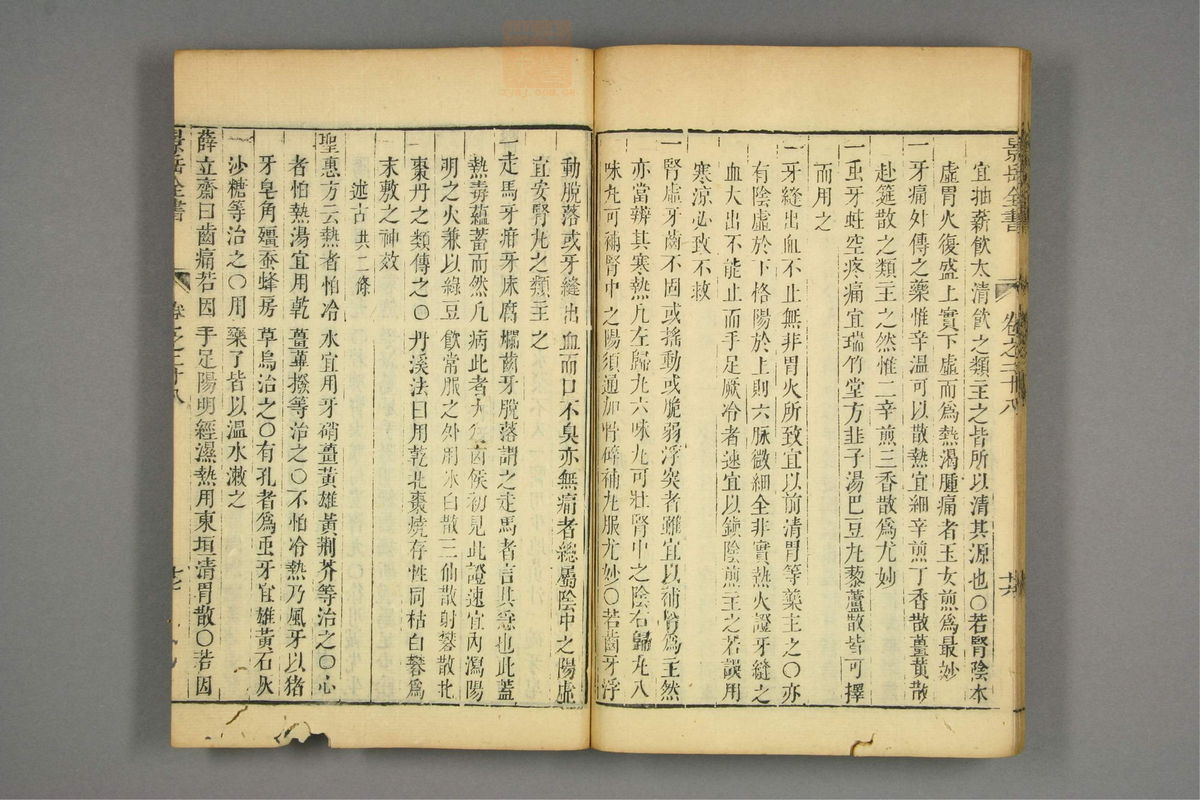 景岳全書
卷之二十八
宜抽薪飲太清飲之類主之皆所以清其源也○若腎陰本
虛胃火復盛上實下虛而為熱渴腫痛者玉女煎為最妙
一牙痛外傳之藥惟辛溫可以散熱宜細辛煎丁香散薑黃散
赴筵散之類主之然惟二辛煎三香散為尤妙
一虫牙蛀空疼痛宜瑞竹堂方韭子湯巴豆丸藜蘆散皆可擇
而用之
一牙縫出血不止無非胃火所致宜以前清胃等藥主之○亦
有陰虛於下格陽於上則六脉微細全非實熱火證牙縫之
血大出不能止而手足厥冷者速宜以鎮陰煎主之若誤用
寒涼必致不救
一腎虛牙齒不固或搖動或脆弱浮突者雖宜以補腎為主然
亦當辨其寒熱凡左歸丸六味丸可壯腎中之陰右歸丸八
味丸可補腎中之陽須通加骨碎補丸服尤妙○若齒牙浮
動脫落或牙縫出血而口不臭亦無痛者總屬陰中之陽虛
宜安腎丸之類主之
一走馬牙疳牙床腐爛齒牙脫落謂之走馬者言其急也此蓋
熱毒蘊蓄而然凡病此者大為凶候初見此證速宜內瀉陽
明之火兼以綠豆飲常服之外用冰白散三仙散射礬散北
棗丹之類傳之○丹溪法曰用乾北棗燒存性同枯白礬為
末敷之神效
述古共二條
聖惠方云熱者怕冷水宜用牙硝薑黃雄黃荆芥等治之○心
者怕熱湯宜用乾薑蓽撥等治之○不怕冷熱乃風牙以猪
牙皂角殭蚕蜂房草烏治之○有孔者為虫牙宜雄黃石灰
沙糖等治之○用藥了皆以溫水漱之
薛立齋曰齒痛若因手足陽明經濕熱用東垣清胃散○若因
景岳全書
卷之二十八